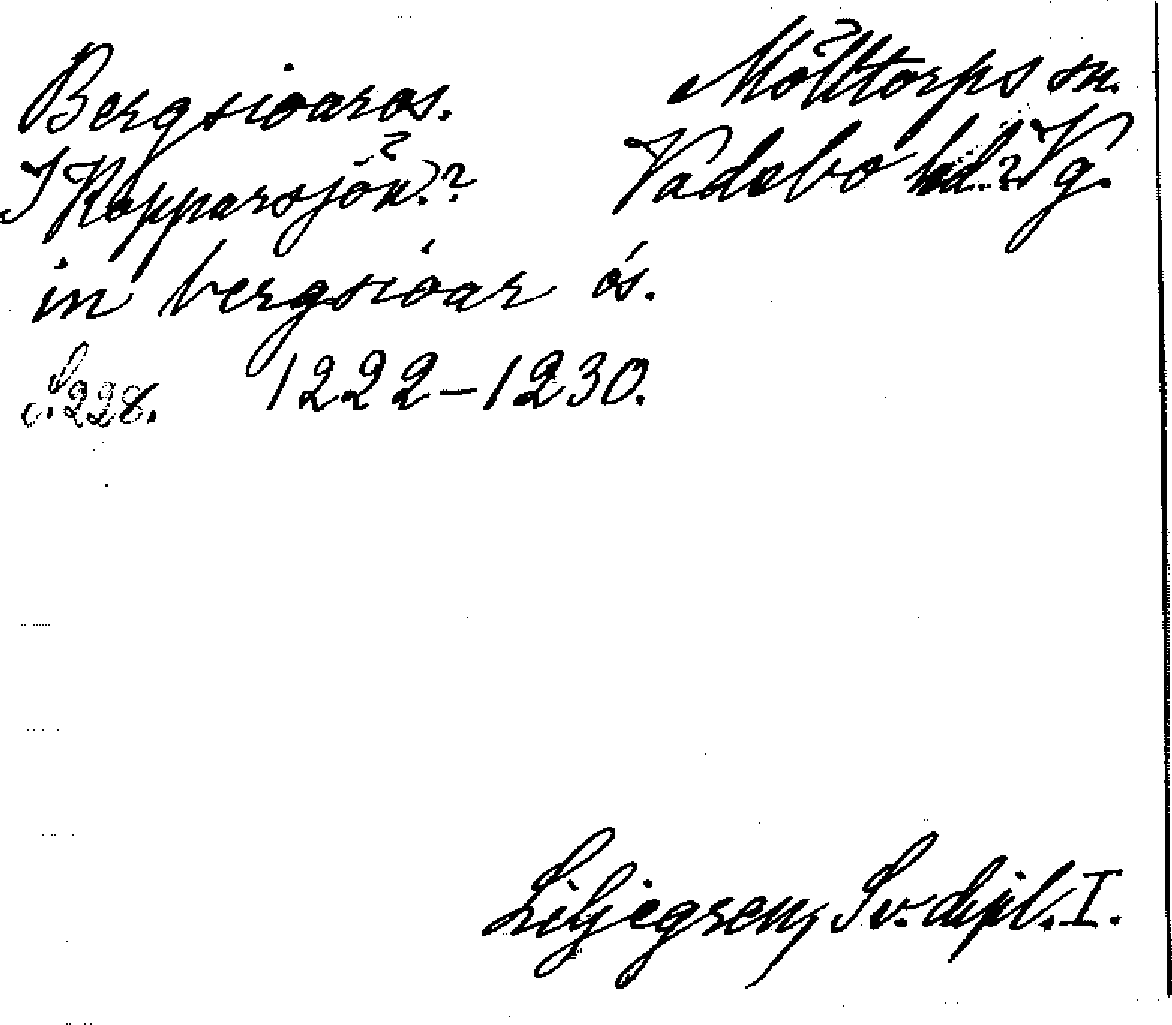 Bergsioaros.
Mölltorps sn.
I Kopparsjön??
Vadsbo hd.? Vg.
in bergsioar ós.
S. 228. 1222-1230.
Liljegren, Sv. dipl. I.